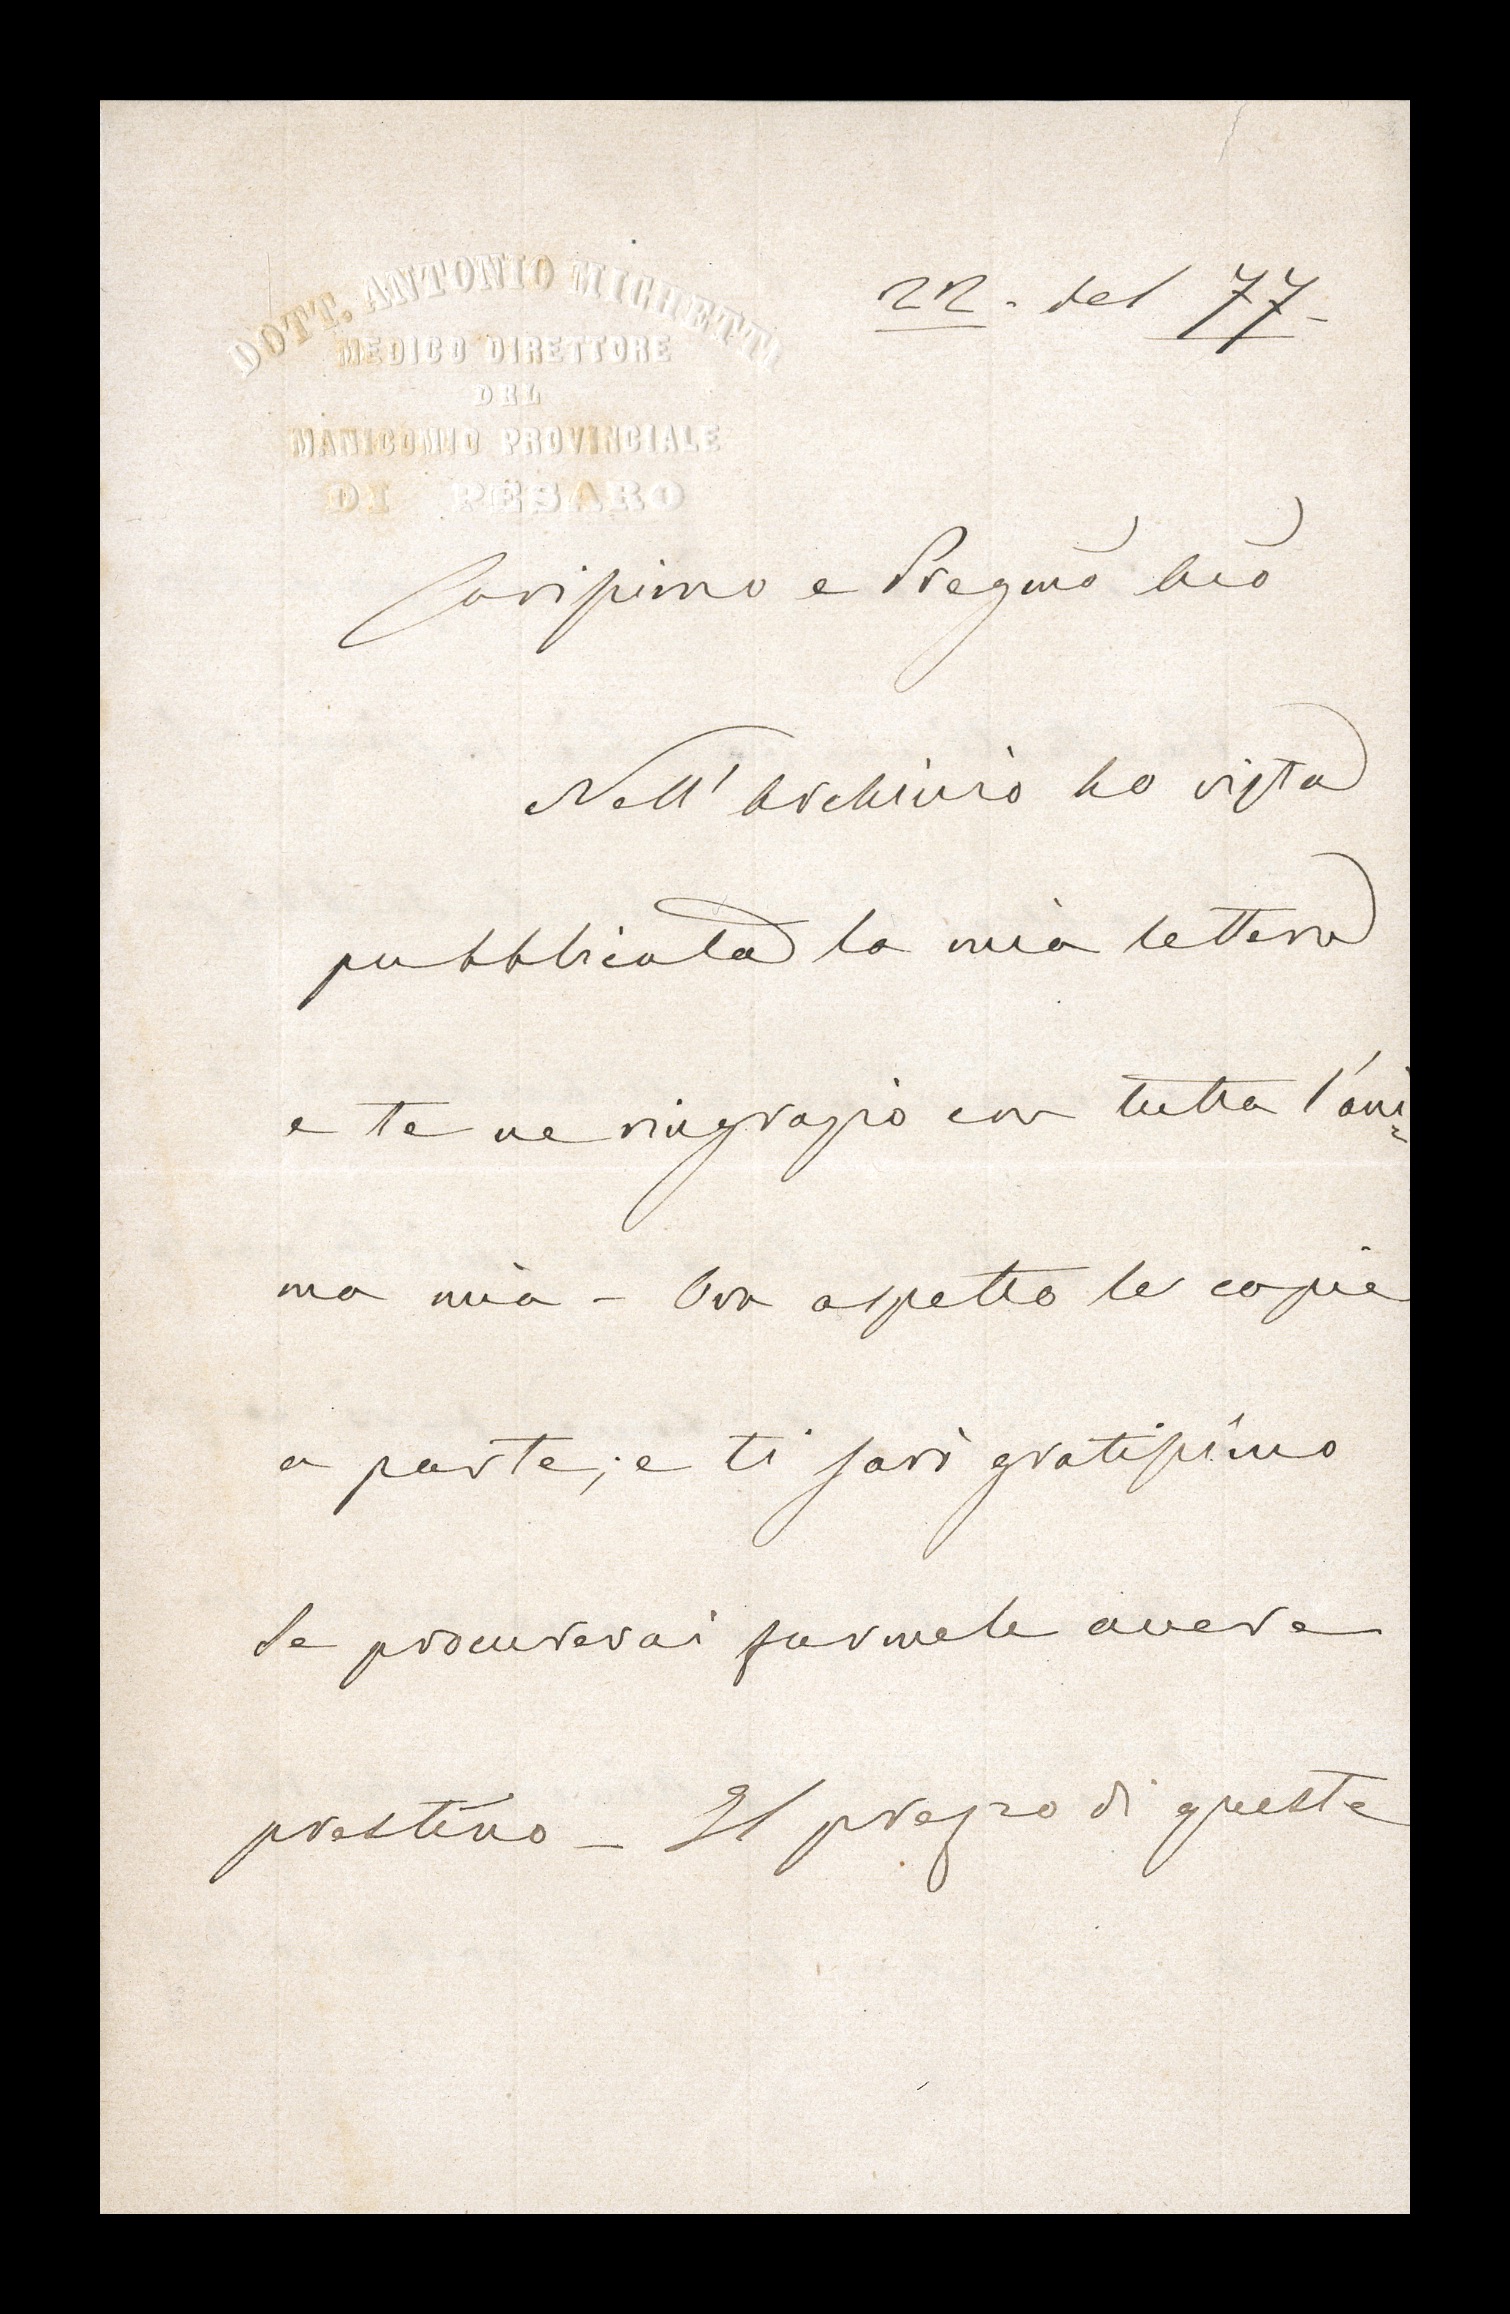 DOTT. ANTONIO MICHETTI
MEDICO DIRETTORE
DEL
MANICOMIO PROVINCIALE
DI PESARO
22. del 77-
Carissimo e Pregmo
Nell' Archivio ho vista
pubblicata la mia lettera
e te ne ringrazio con tutta l'ani=
ma mia - Ora aspetto le copie
a parte; e ti sarò gratissimo
se procurerai farmele avere
prestino - Il prezzo di queste